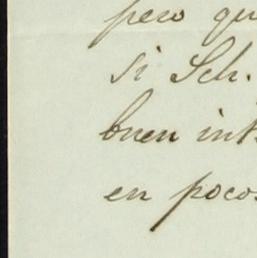 pero qu
si Sch.
buen int
en pocos